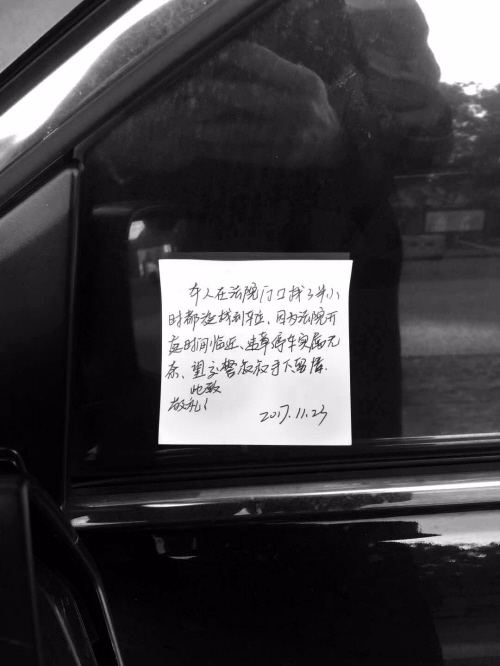 本人在法院门口找了半小
时都没找到车位、因为法院开
庭时间临近、违章停车实属无
奈、望交警叔叔手下留情.
此致
敬礼!
2017.11.23